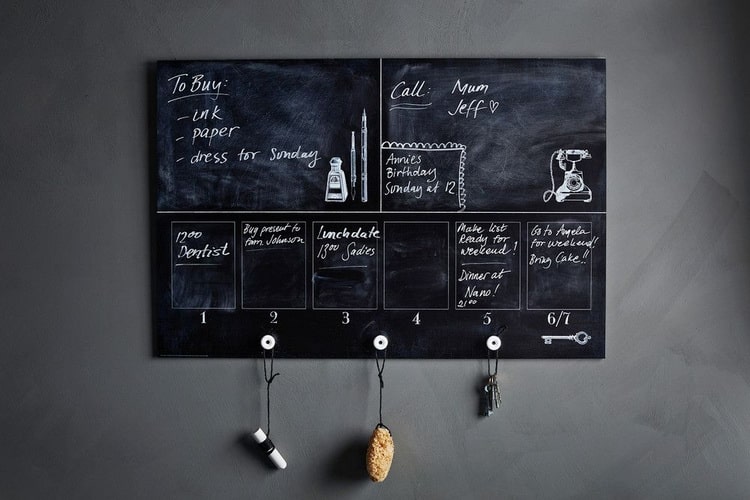 To Buy:
- ink
- paper
- dress for Sunday
Call: Mum
Jeff ♡
Annie's
Birthday
Sunday at 12
1700
Dentist
Buy present to
fam. Johnson
Lunchdate
1300 Sadies
Make list
Ready for
weekend!
Dinner at
Nano!
2100
Go to Angela
for weekend!!
Bring Cake!!
1 2 3 4 5 6/7